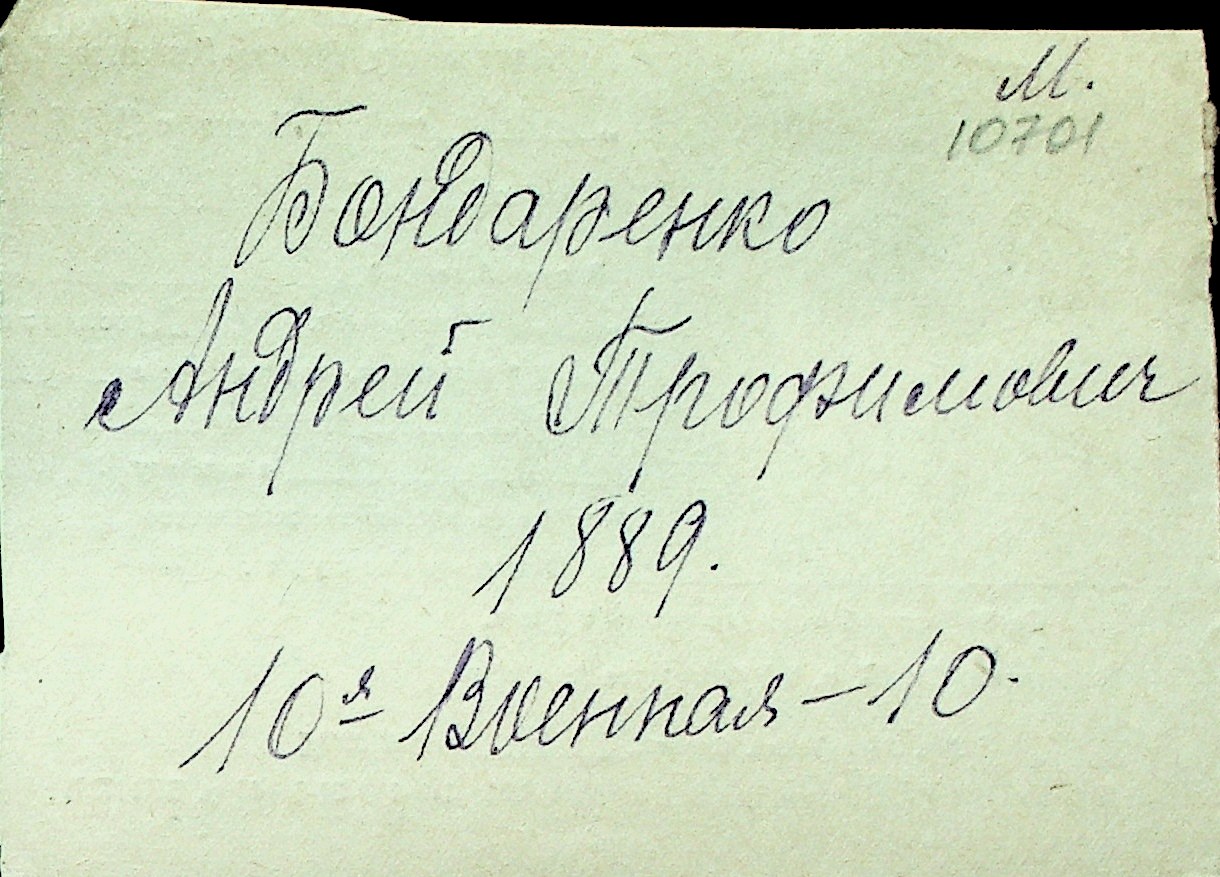 М.
10701
Бондаренко
Андрей Трофимович
1889.
10я Военная – 10.